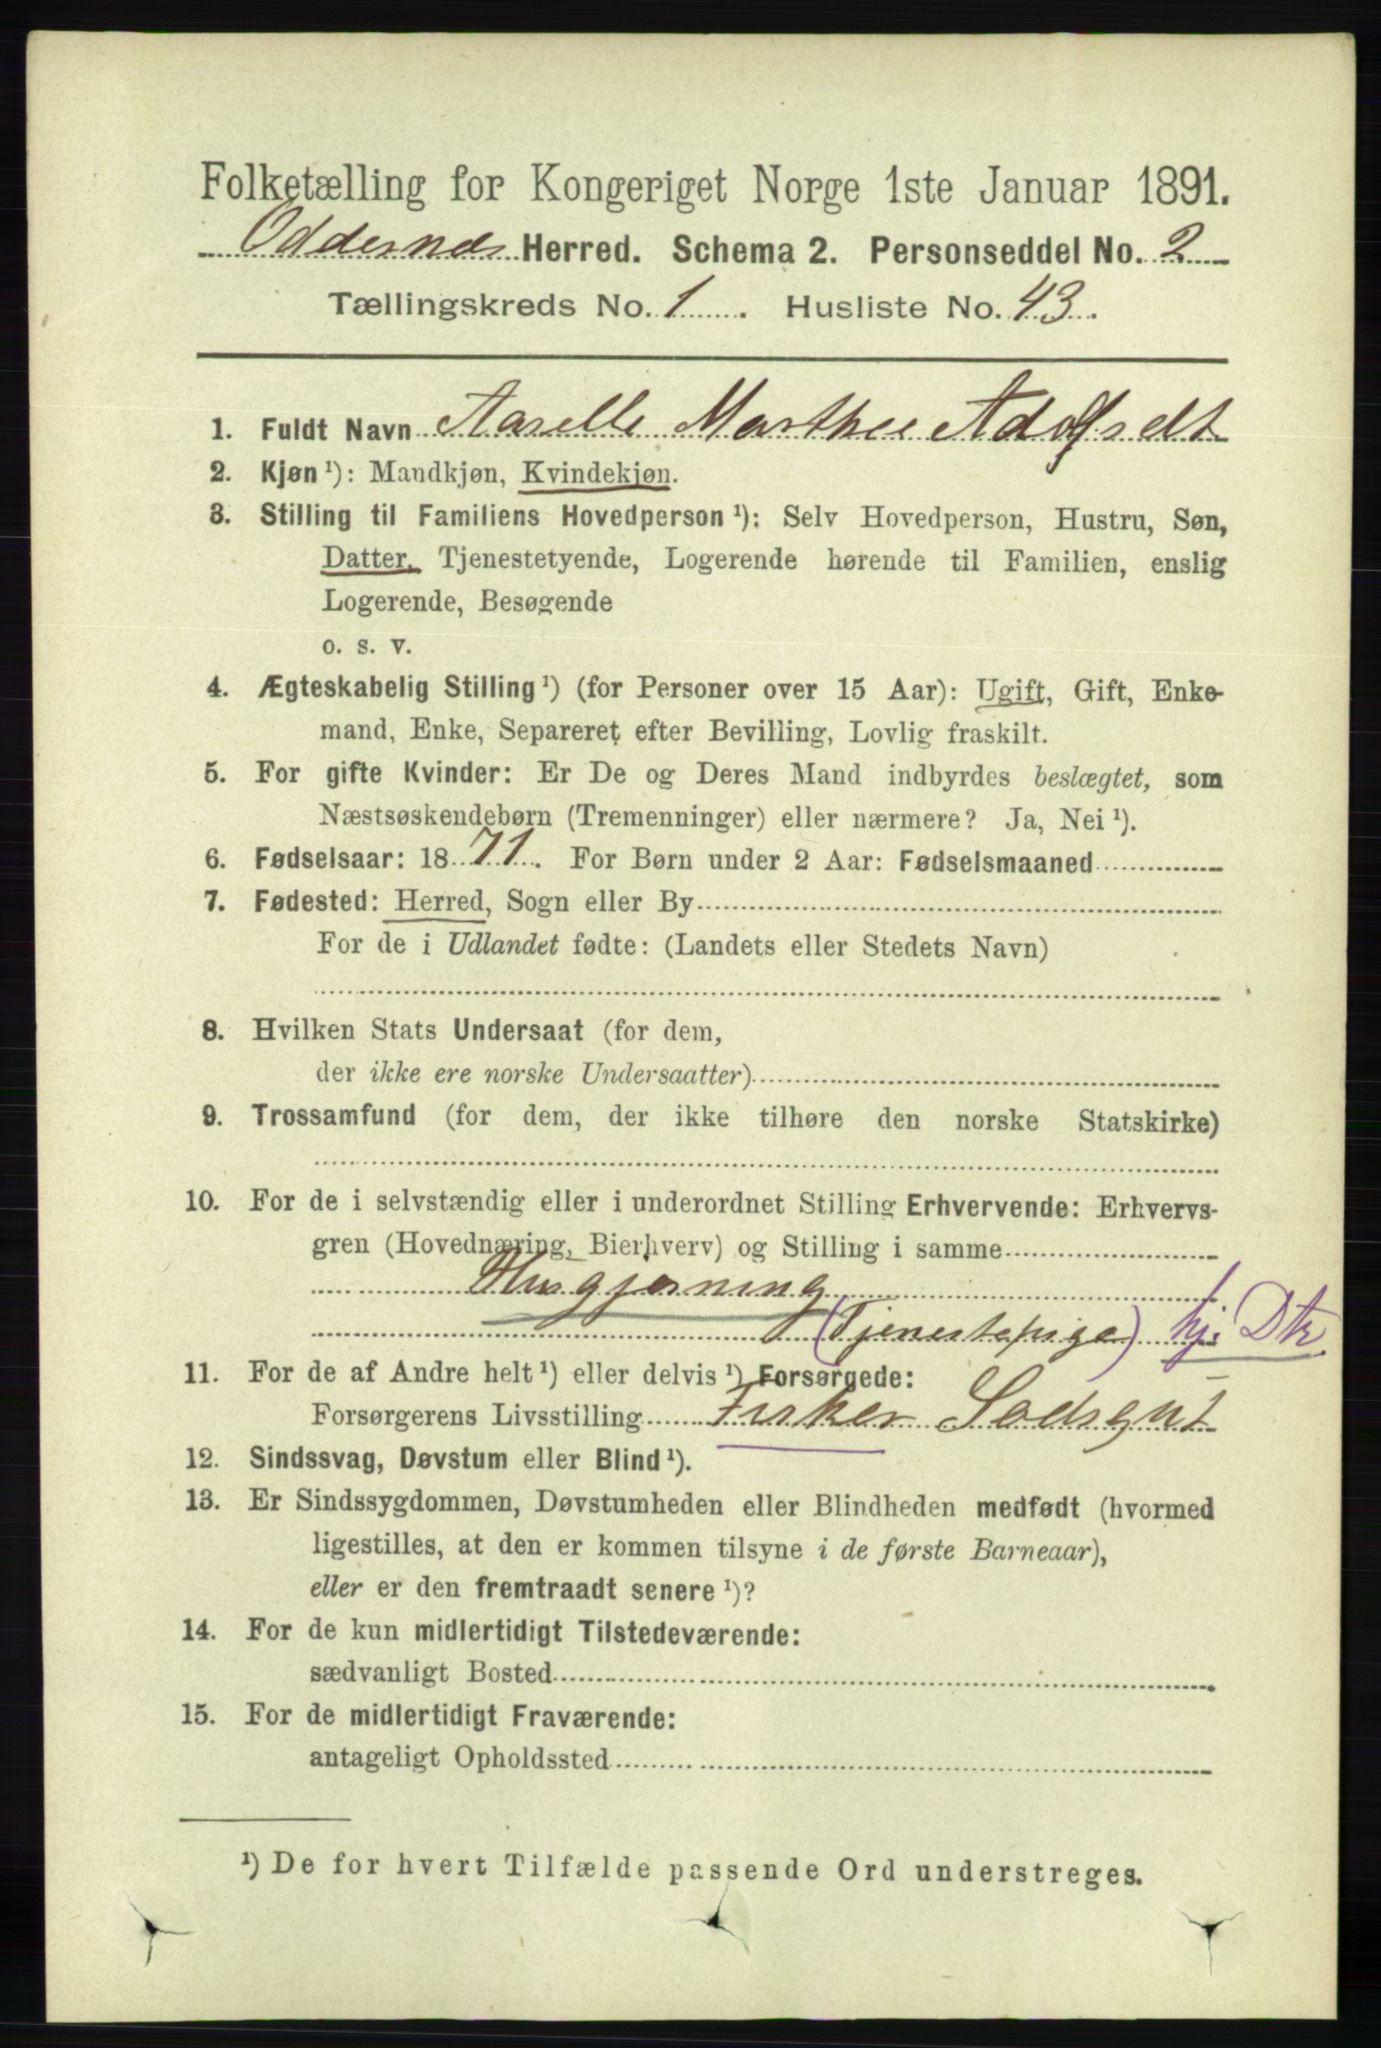 Folketælling for Kongeriget Norge 1ste Januar 1891.
Oddernes Herred. Schema 2. Personseddel No. 2
Tællingskreds No. 1. Husliste No. 43.
1. Fuldt Navn Aaselle Marthee Adolfsdt
2. Kjøn ¹): Mandkjøn, Kvindekjøn.
3. Stilling til Familiens Hovedperson ¹): Selv Hovedperson, Hustru, Søn,
Datter, Tjenestetyende, Logerende hørende til Familien, enslig
Logerende, Besøgende
o. s. v.
4. Ægteskabelig Stilling ¹) (for Personer over 15 Aar): Ugift, Gift, Enke-
mand, Enke, Separeret efter Bevilling, Lovlig fraskilt.
5. For gifte Kvinder: Er De og Deres Mand indbyrdes beslægtet, som
Næstsøskendebørn (Tremenninger) eller nærmere? Ja, Nei ¹).
6. Fødselsaar: 1871. For Børn under 2 Aar: Fødselsmaaned
7. Fødested: Herred, Sogn eller By
For de i Udlandet fødte: (Landets eller Stedets Navn)
8. Hvilken Stats Undersaat (for dem,
der ikke ere norske Undersaatter)
9. Trossamfund (for dem, der ikke tilhøre den norske Statskirke)
10. For de i selvstændig eller i underordnet Stilling Erhvervende: Erhvervs-
gren (Hovednæring, Bierhverv) og Stilling i samme
Husgjerning
(Tjenestepige) hj. Dtr
11. For de af Andre helt ¹) eller delvis ¹) Forsørgede:
Forsørgerens Livsstilling Fisker Lodsgut
12. Sindssvag, Døvstum eller Blind ¹).
13. Er Sindssygdommen, Døvstumheden eller Blindheden medfødt (hvormed
ligestilles, at den er kommen tilsyne i de første Barneaar),
eller er den fremtraadt senere ¹)?
14. For de kun midlertidigt Tilstedeværende:
sædvanligt Bosted
15. For de midlertidigt Fraværende:
antageligt Opholdssted
¹) De for hvert Tilfælde passende Ord understreges.